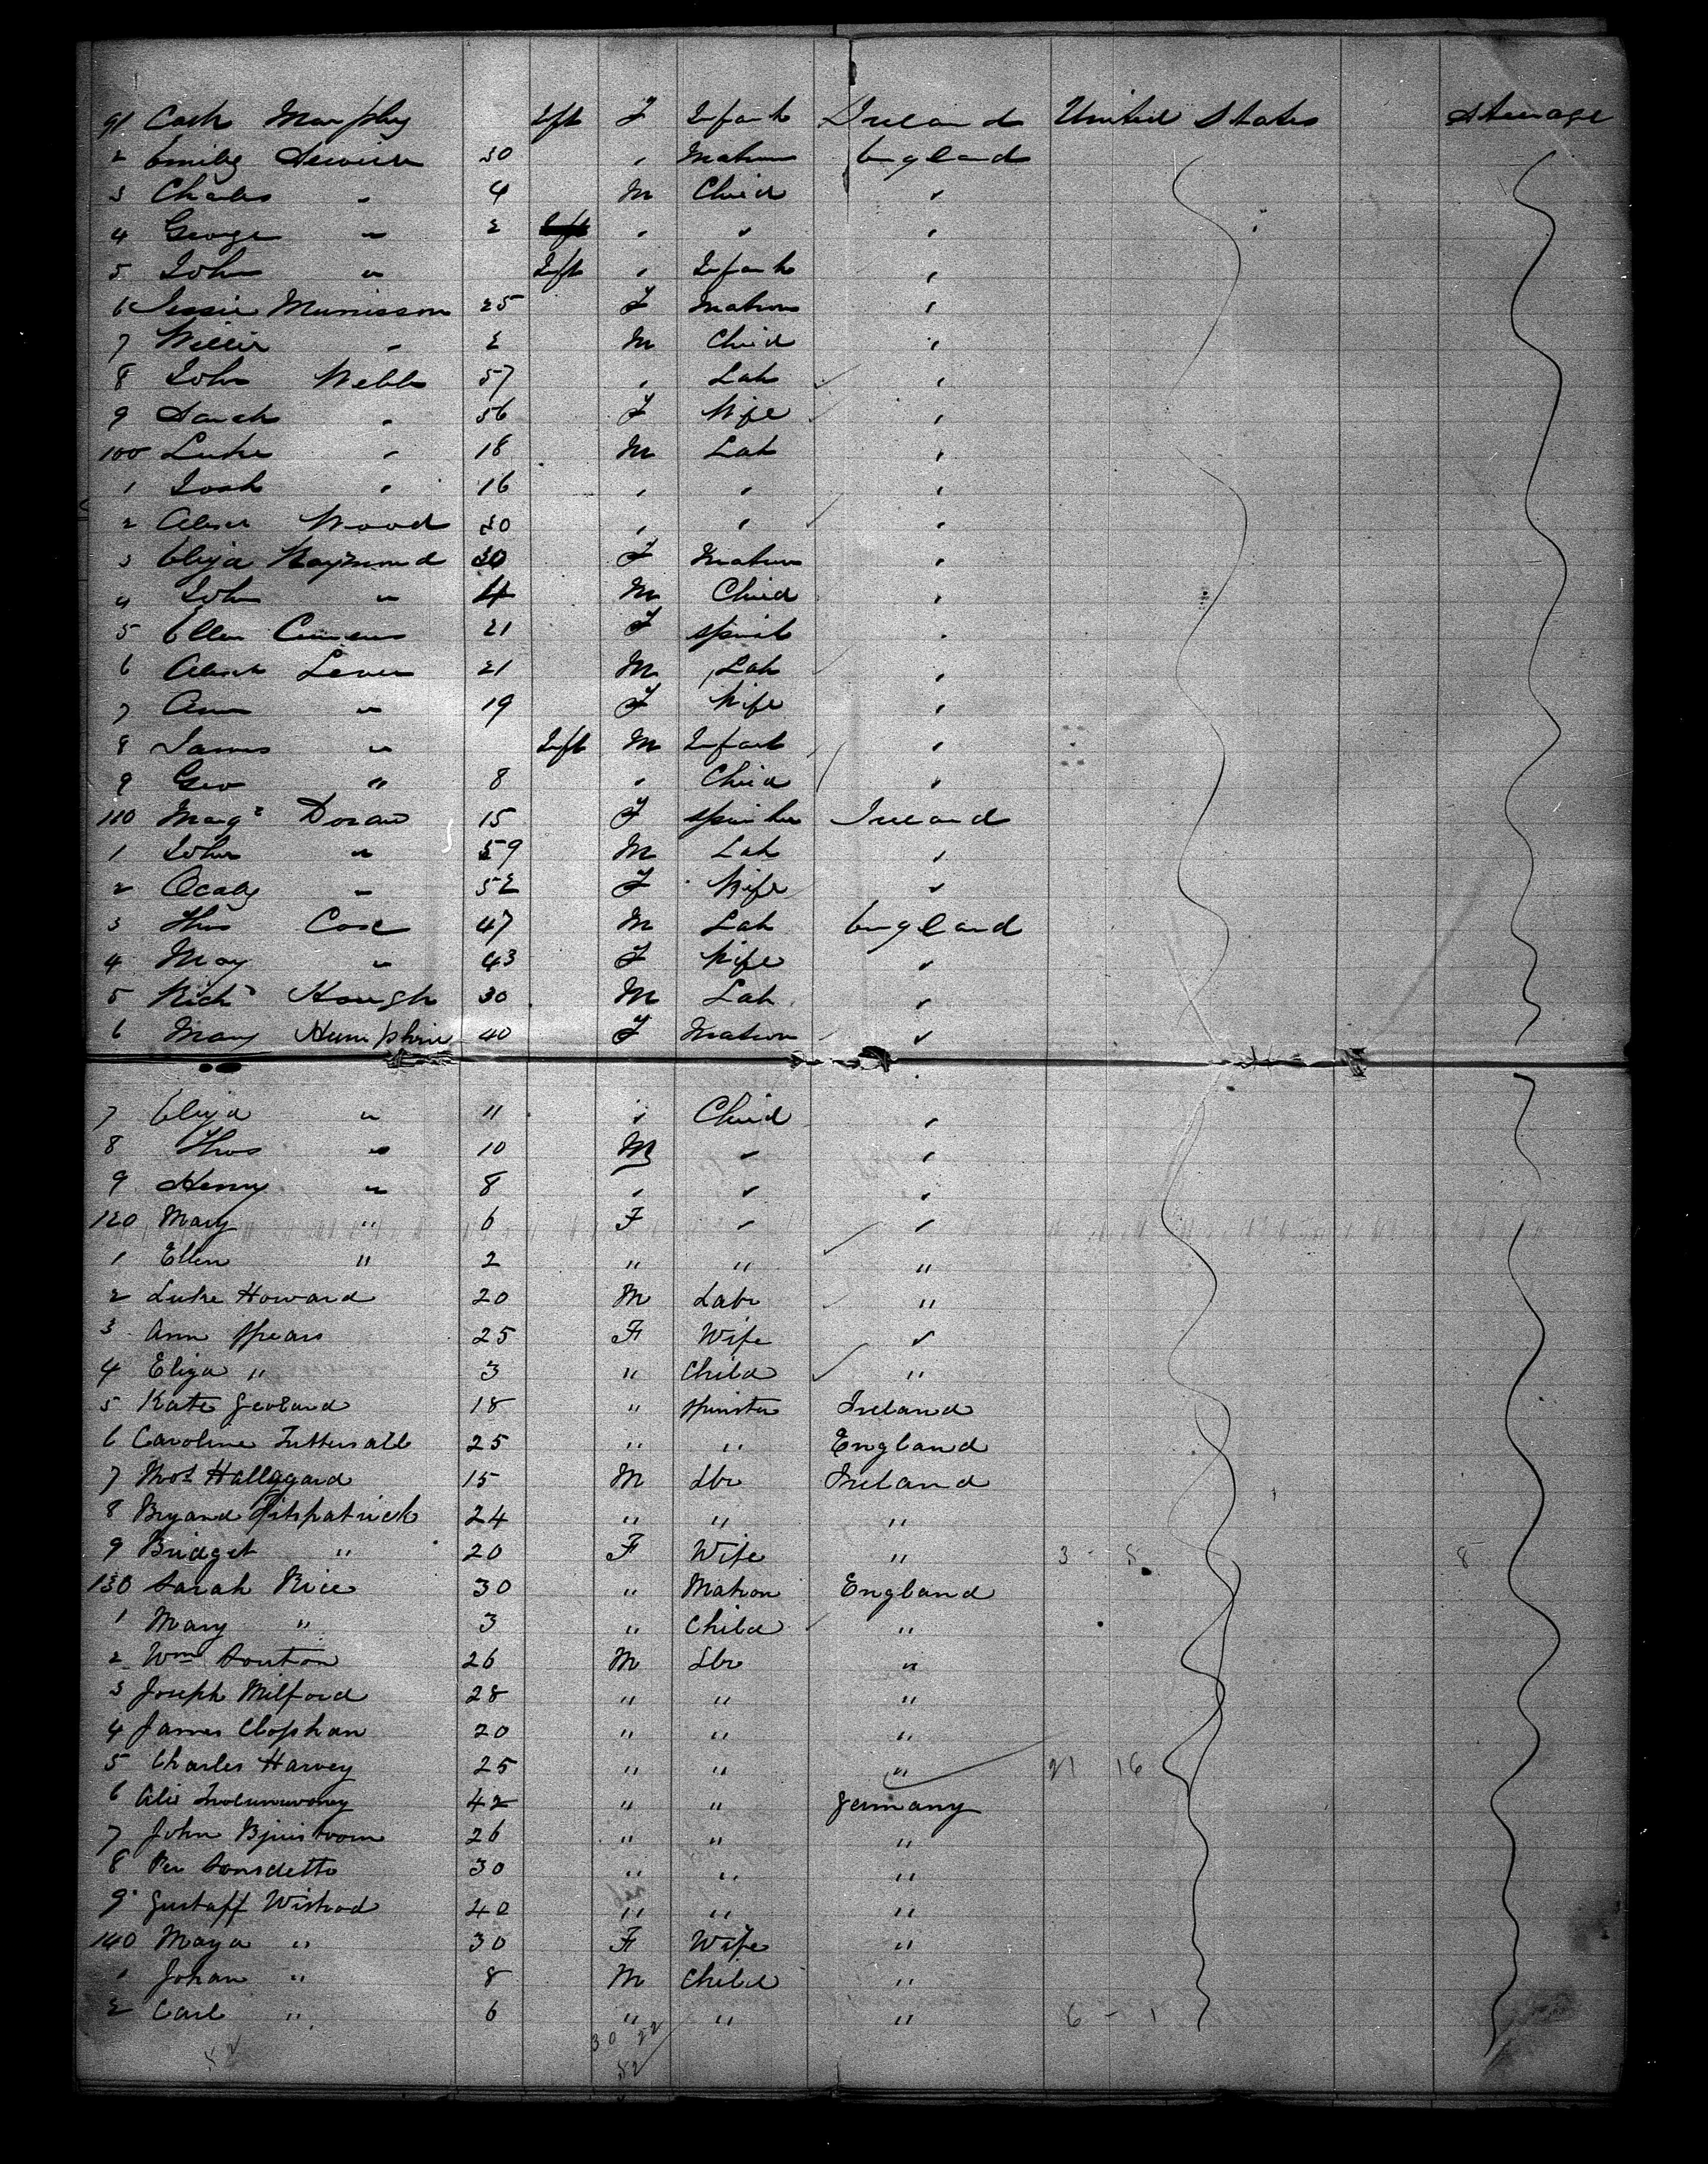 91 Cath Murphy Inft F Infant Ireland United States Steerage
2 Emily 30 " Matron England
3 Charles " 4 M Child "
4 George " 2 " " "
5 John " Inft " Infant "
6 Jessie Murrisson 25 F Matron "
7 Willie " 2 M Child "
8 John Webb 57 " Lab "
9 Sarah " 56 F Wife "
100 Luke " 18 M Lab "
1 Josh " 16 " " "
2 Albert Wood 30 " " "
3 Eliza Raymond 30 F Matron "
4 John " 4 M Child "
5 Ellen 21 F Spinst "
6 Albert Lever 21 M Lab "
7 Ann " 19 F Wife "
8 James " Inft M Infant "
9 Geo " 8 " Child "
110 Margt Doran 15 F Spinster Ireland
1 John " 59 M Lab "
2 " 52 F Wife "
3 Thos Cose 47 M Lab England
4 May " 43 F Wife "
5 Richd Hough 30 M Lab "
6 Mary Humphrie 40 F Matron "
7 Eliza " 11 " Child "
8 Thos " 10 M " "
9 Henry " 8 " " "
120 Mary " 6 F " "
1 Ellen " 2 " " "
2 Luke Howard 20 M Labr "
3 Ann Spears 25 F Wife "
4 Eliza " 3 " Child "
5 Kate Geoland 18 " Spinster Ireland
6 Caroline Tuttersall 25 " " England
7 Thos Hallagard 15 M Lbr Ireland
8 Bryand Fitspatrick 24 " " "
9 Bridget " 20 F Wife " 3 - 5 8
130 Sarah Rice 30 " Matron England
1 Mary " 3 " Child "
2 Wm Souton 26 M Lbr "
3 Joseph Milford 28 " " "
4 James Clophan 20 " " "
5 Charles Harvey 25 " " " 21 16
6 42 " " Germany
7 John Bjuistroom 26 " " "
8 Per Sonsdetto 30 " " "
9 Gustaff Wistrod 40 " " "
140 Maya " 30 F Wife "
1 Johan " 8 M Child "
2 Carl " 6 " " " 6 - 1
30 22
52 52